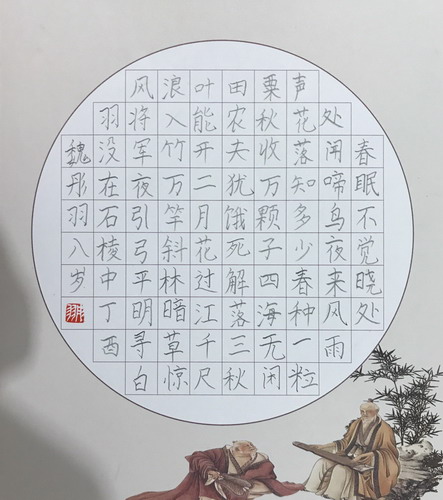 春眠不觉晓处
处闻啼鸟夜来风雨
声花落知多少春种一粒
粟秋收万颗子四海无闲
田农夫犹饿死解落三秋
叶能开二月花过江千尺
浪入竹万竿斜林暗草惊
风将军夜引弓平明寻白
羽没在石棱中丁酉
魏彤羽八岁